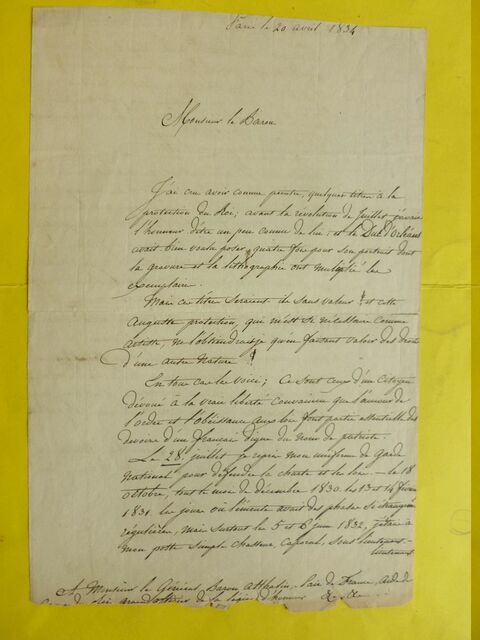 Paris le 20 avril 1834
Monsieur le Baron
J'ai cru avoir comme peintre, quelques titres à la
protection du Roi; avant la révolution de Juillet j'avais
l'honneur d'être un peu connu de lui, et le Duc d'Orléans
avait bien voulu poser quatre fois pour son portrait dont
la gravure et la lithographie ont multiplié les
exemplaires.
Mais ces titres seraient ils sans valeur! et cette
Auguste protection, qui m'est si nécessaire comme
artiste, ne l'obtiendrai-je qu'en faisant valoir des droits
d'une autre Nature!
En tout cas les voici; Ce sont ceux d'un Citoyen
dévoué à la vraie liberté convaincu que l'amour de
l'ordre et l'obéissance aux lois font partie essentielle des
devoirs d'un français digne du nom de patriote.
Le 28 juillet je repris mon uniforme de Garde
National pour défendre la charte et les lois. le 18
octobre, tout le mois de décembre 1830. les 13 et 14 février
1831. les jours où l'émeute avait des phases si étrangement
régulières, mais surtout les 5 et 6 juin 1832, j'étais à
mon poste simple chasseur, caporal, sous lieutenant
lieutenant.
A Monsieur le Général Baron Athalin, Pair de France, aide de
grand officier de la légion d'honneur &. &.